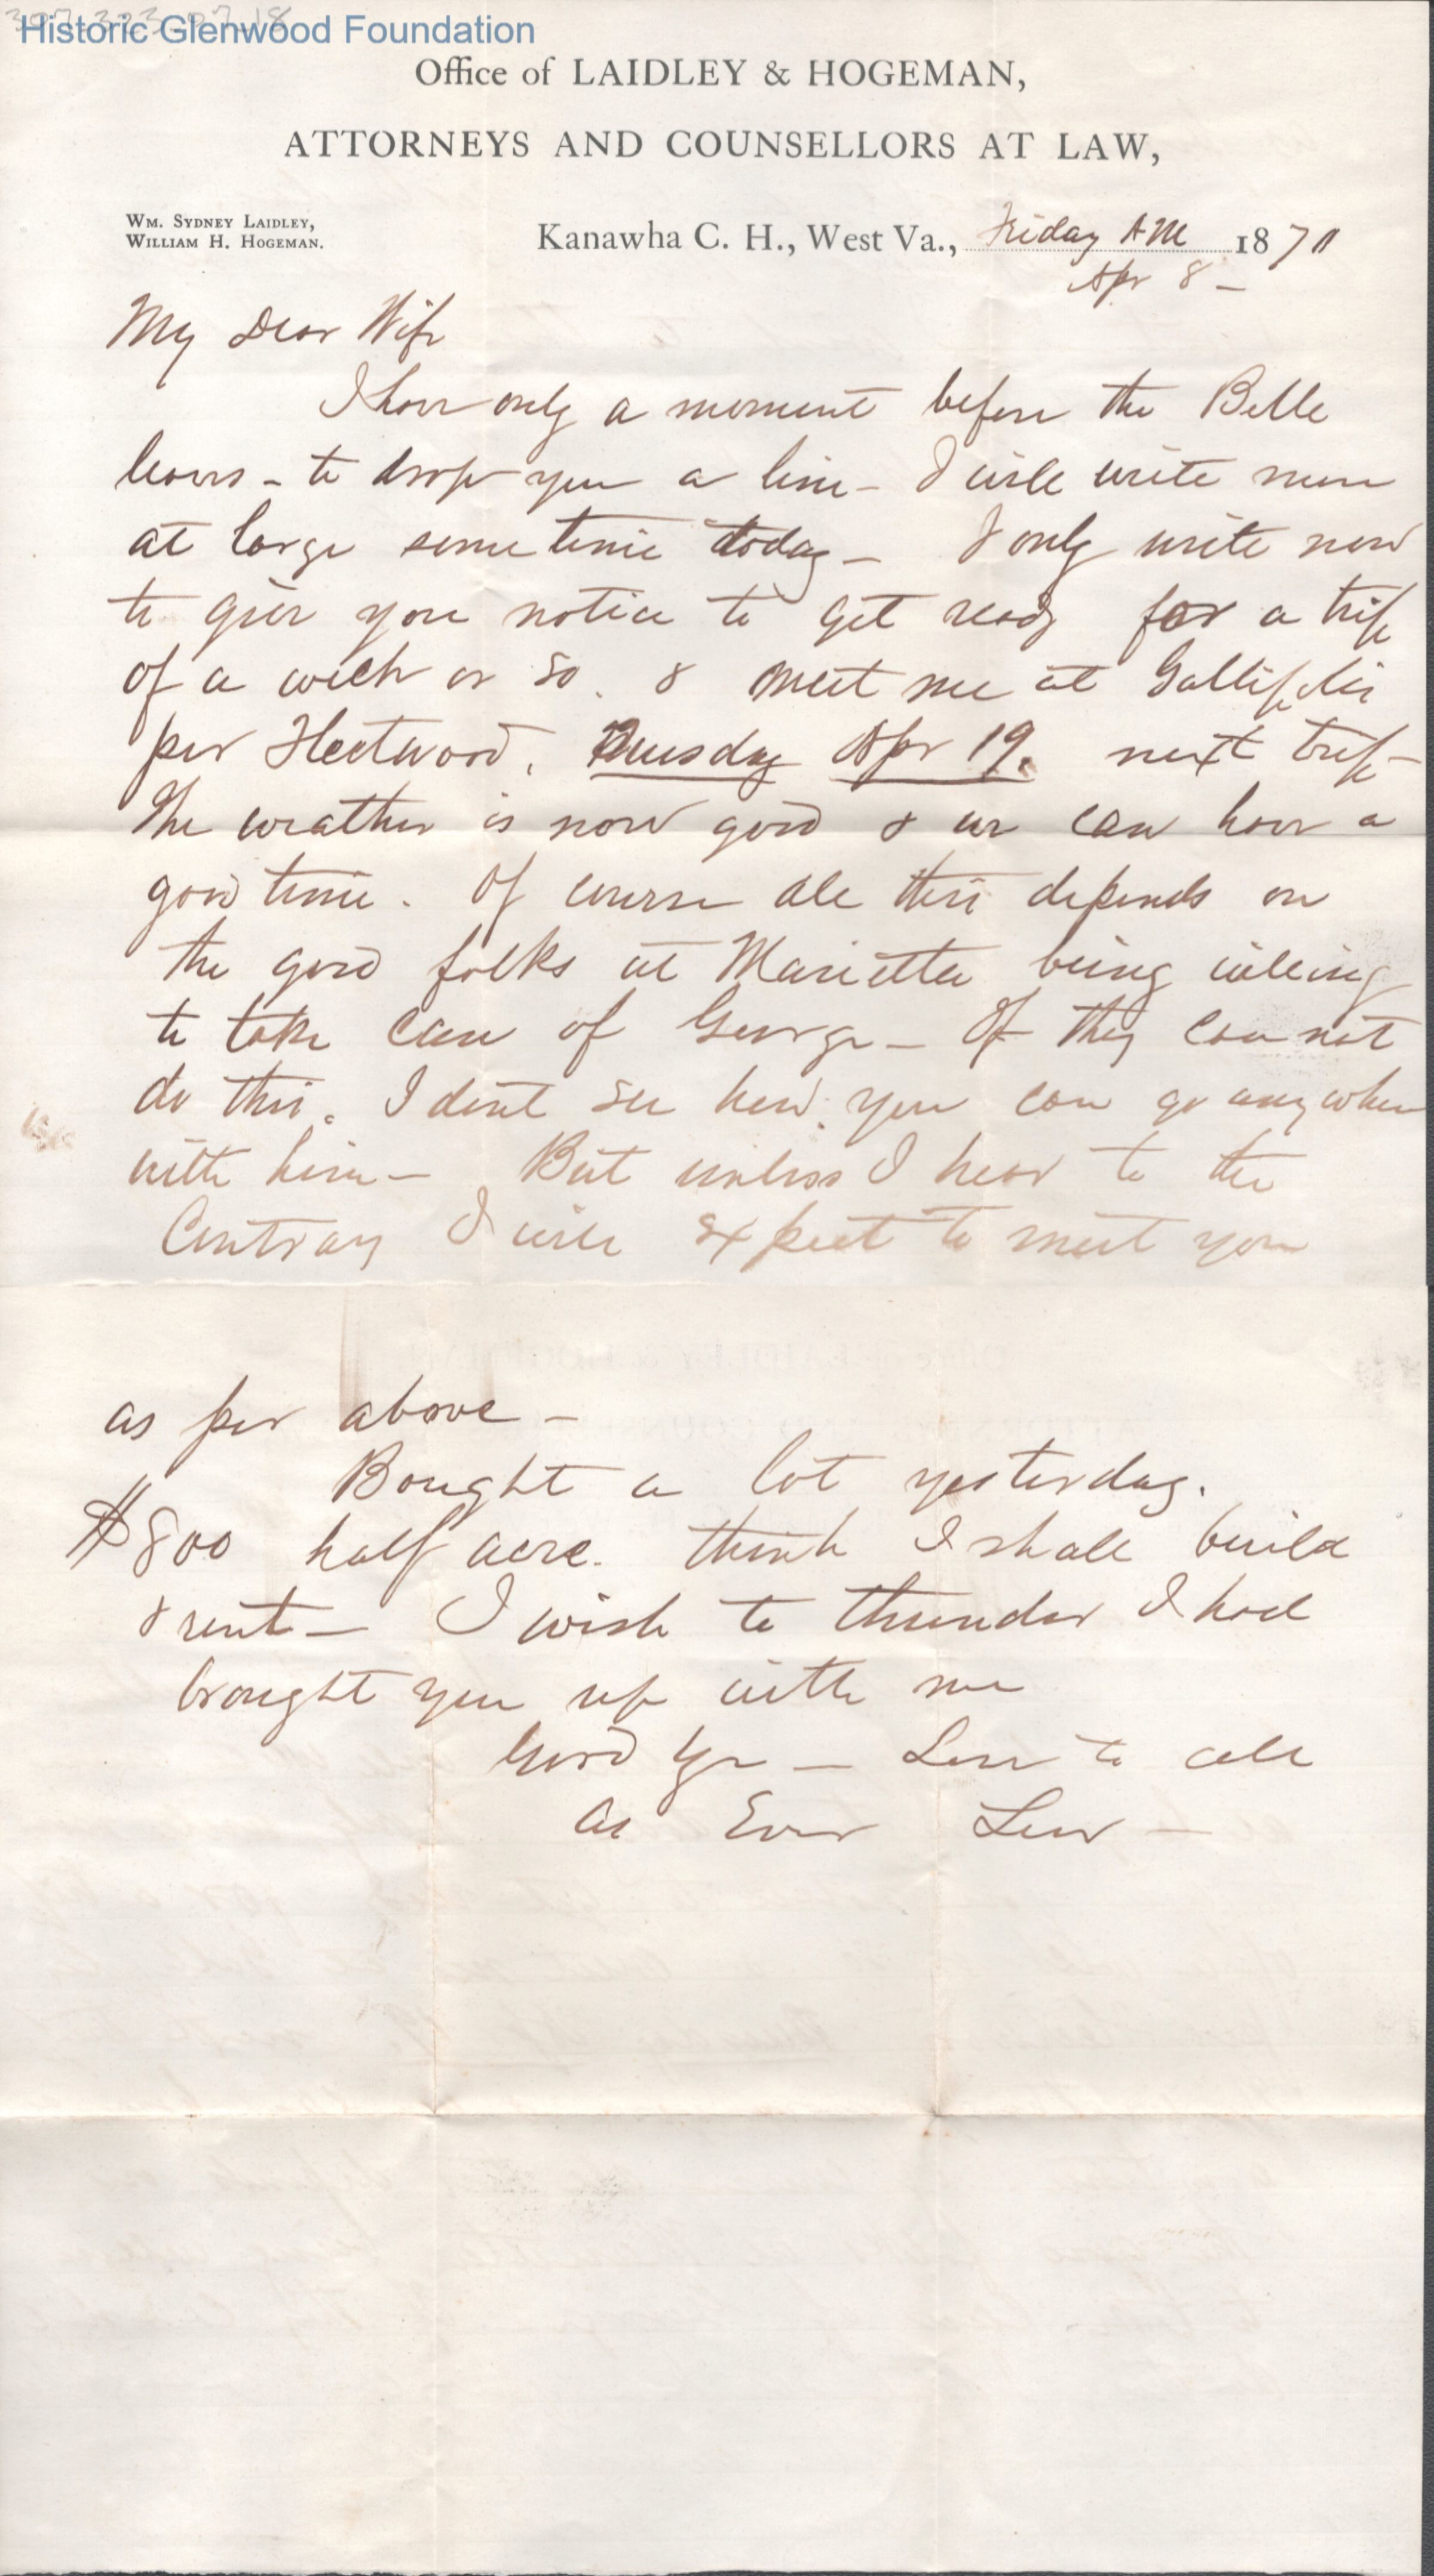 Historic Glenwood Foundation
Office of LAIDLEY & HOGEMAN,
ATTORNEYS AND COUNSELLORS AT LAW,
WM. SYDNEY LAIDLEY,
WILLIAM H. HOGEMAN.
Kanawha C. H., West Va., Friday AM 1870
Apr 8 -
My Dear Wife
I have only a moment before the Belle
leaves - to drop you a line - I will write more
at large some time today - I only write now
to give you notice to get ready for a trip
of a week or so. & meet me at Gallipolis
per Fleetwood. Tuesday Apr 19. next trip -
The weather is now good & we can have a
good time. Of course all this depends on
the good folks at Marietta being willing
to take care of George - If they can not
do this. I dont see how you can go anywhere
with him - But unless I hear to the
Contrary I will expect to meet you
as per above -
Bought a lot yesterday.
$800 half acre. think I shall build
& rent - I wish to thunder I had
brought you up with me
Good bye - Love to all
As Ever Lew -